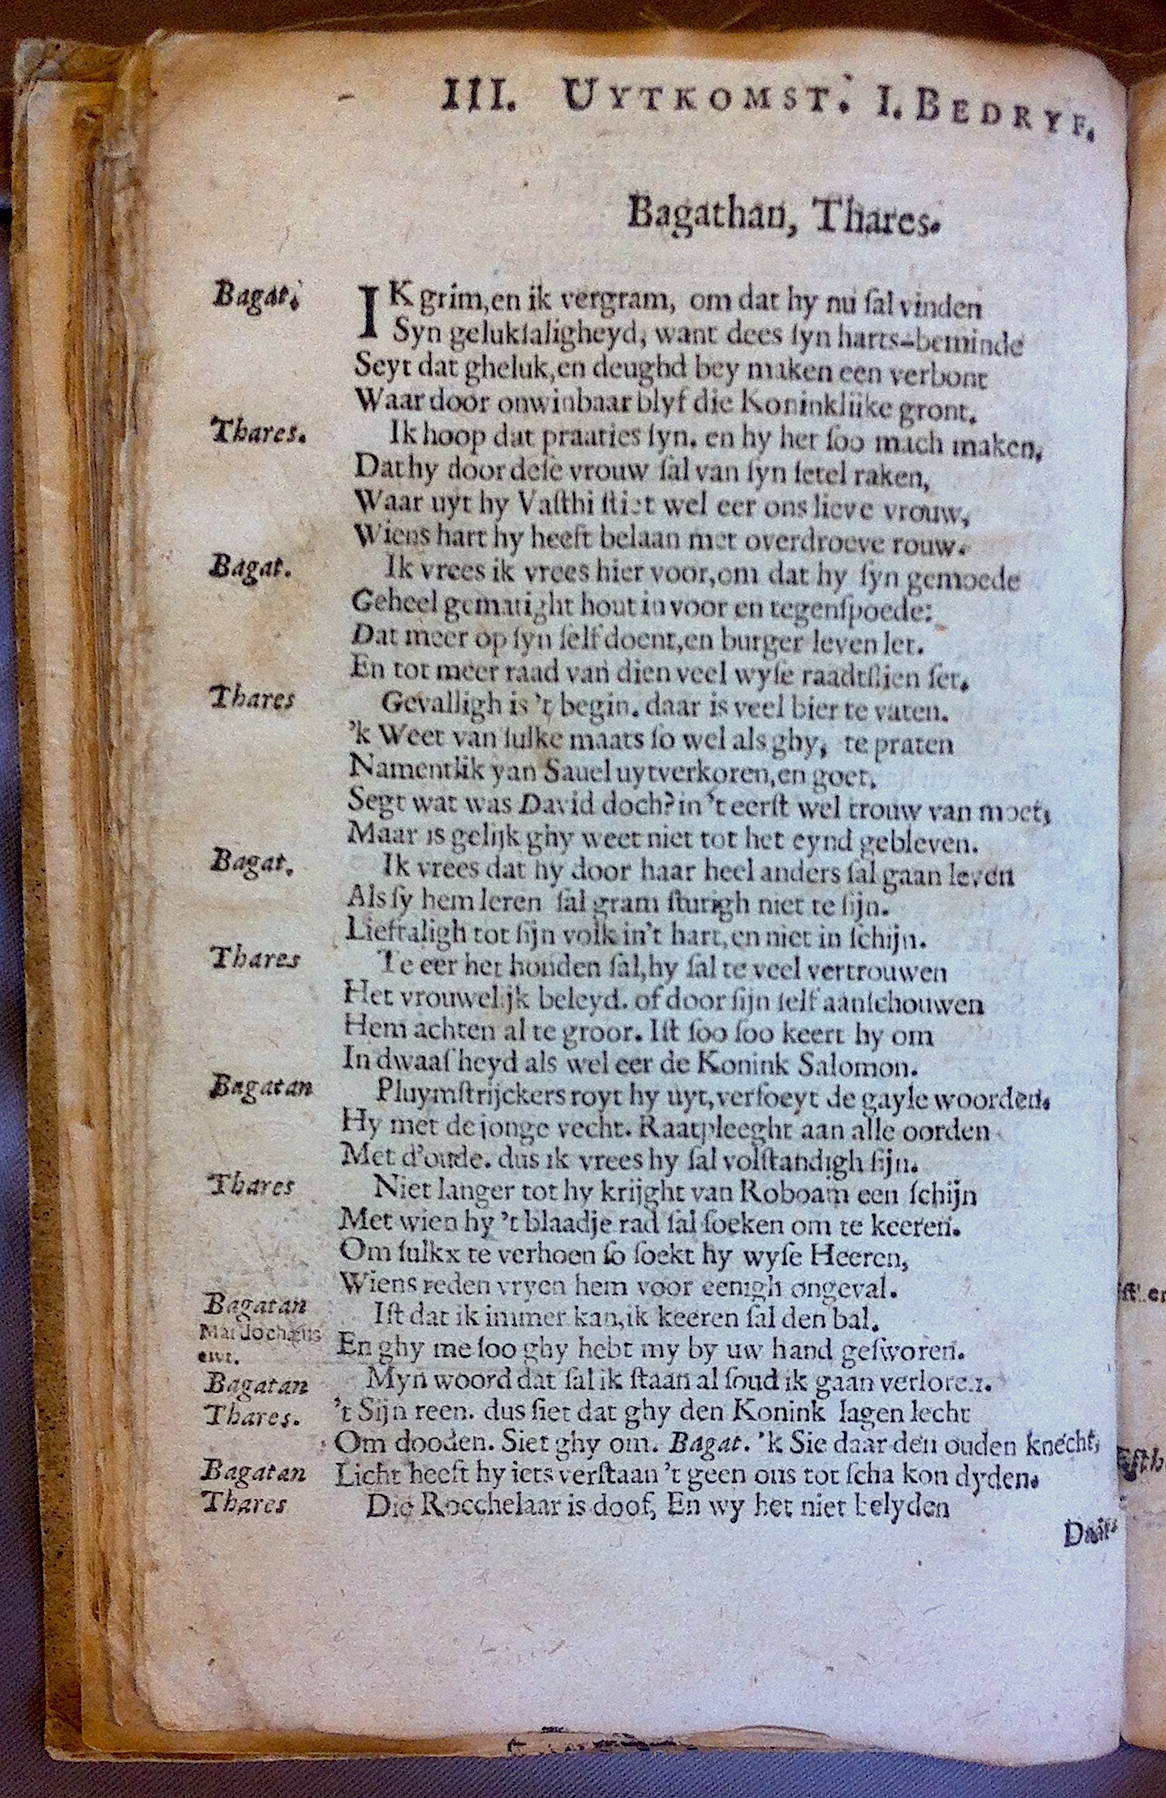 III. UYTKOMST. I. BEDRYF.
Bagathan, Thares.
Bagat. IK grim, en ik vergram, om dat hy nu ſal vinden
Syn gelukſaligheyd, want dees ſyn harts-beminde
Seyt dat gheluk, en deughd bey maken een verbont
Waar door onwinbaar blyf die Koninklijke gront.
Thares. Ik hoop dat praaties ſyn. en hy het ſoo mach maken,
Dat hy door deſe vrouw ſal van ſyn ſetel raken,
Waar uyt hy Vaſthi ſtiet wel eer ons lieve vrouw,
Wiens hart hy heeft belaan met overdroeve rouw.
Bagat. Ik vrees ik vrees hier voor, om dat hy ſyn gemoede
Geheel gematight hout in voor en tegenſpoede:
Dat meer op ſyn ſelf doent, en burger leven let.
En tot meer raad van dien veel wyſe raadtſlien ſet.
Thares Gevalligh is 't begin. daar is veel bier te vaten.
'k Weet van ſulke maats ſo wel als ghy, te praten
Namentlik van Sauel uytverkoren, en goet.
Segt wat was David doch? in 't eerſt wel trouw van moet,
Maar is gelijk ghy weet niet tot het eynd gebleven.
Bagat. Ik vrees dat hy door haar heel anders ſal gaan leven
Als ſy hem leren ſal gram ſturigh niet te ſijn.
Lieftaligh tot ſijn volk in't hart, en niet in ſchijn.
Thares Te eer het honden ſal, hy ſal te veel vertrouwen
Het vrouwelijk beleyd. of door ſijn ſelf aanſchouwen
Hem achten al te groot. Iſt ſoo ſoo keert hy om
In dwaaſheyd als wel eer de Konink Salomon.
Bagatan Pluymſtrijckers royt hy uyt, verfoeyt de gayle woorden.
Hy met de jonge vecht. Raatpleeght aan alle oorden
Met d'oude. dus ik vrees hy ſal volſtandigh ſijn.
Thares Niet langer tot hy krijght van Roboam een ſchijn
Met wien hy 't blaadje rad ſal ſoeken om te keeren.
Om ſulkx te verhoen ſo ſoekt hy wyſe Heeren,
Wiens reden vryen hem voor eenigh ongeval.
Bagatan Iſt dat ik immer kan, ik keeren ſal den bal.
Mardochæus En ghy me ſoo ghy hebt my by uw hand geſworen.
uyt.
Bagatan Myn woord dat ſal ik ſtaan al ſoud ik gaan verloren.
Thares. 't Sijn reen. dus ſiet dat ghy den Konink lagen lecht
Om dooden. Siet ghy om. Bagat. 'k Sie daar den ouden knecht,
Bagatan Licht heeft hy iets verſtaan 't geen ons tot ſcha kon dyden.
Thares Die Rocchelaar is doof, En wy het niet belyden